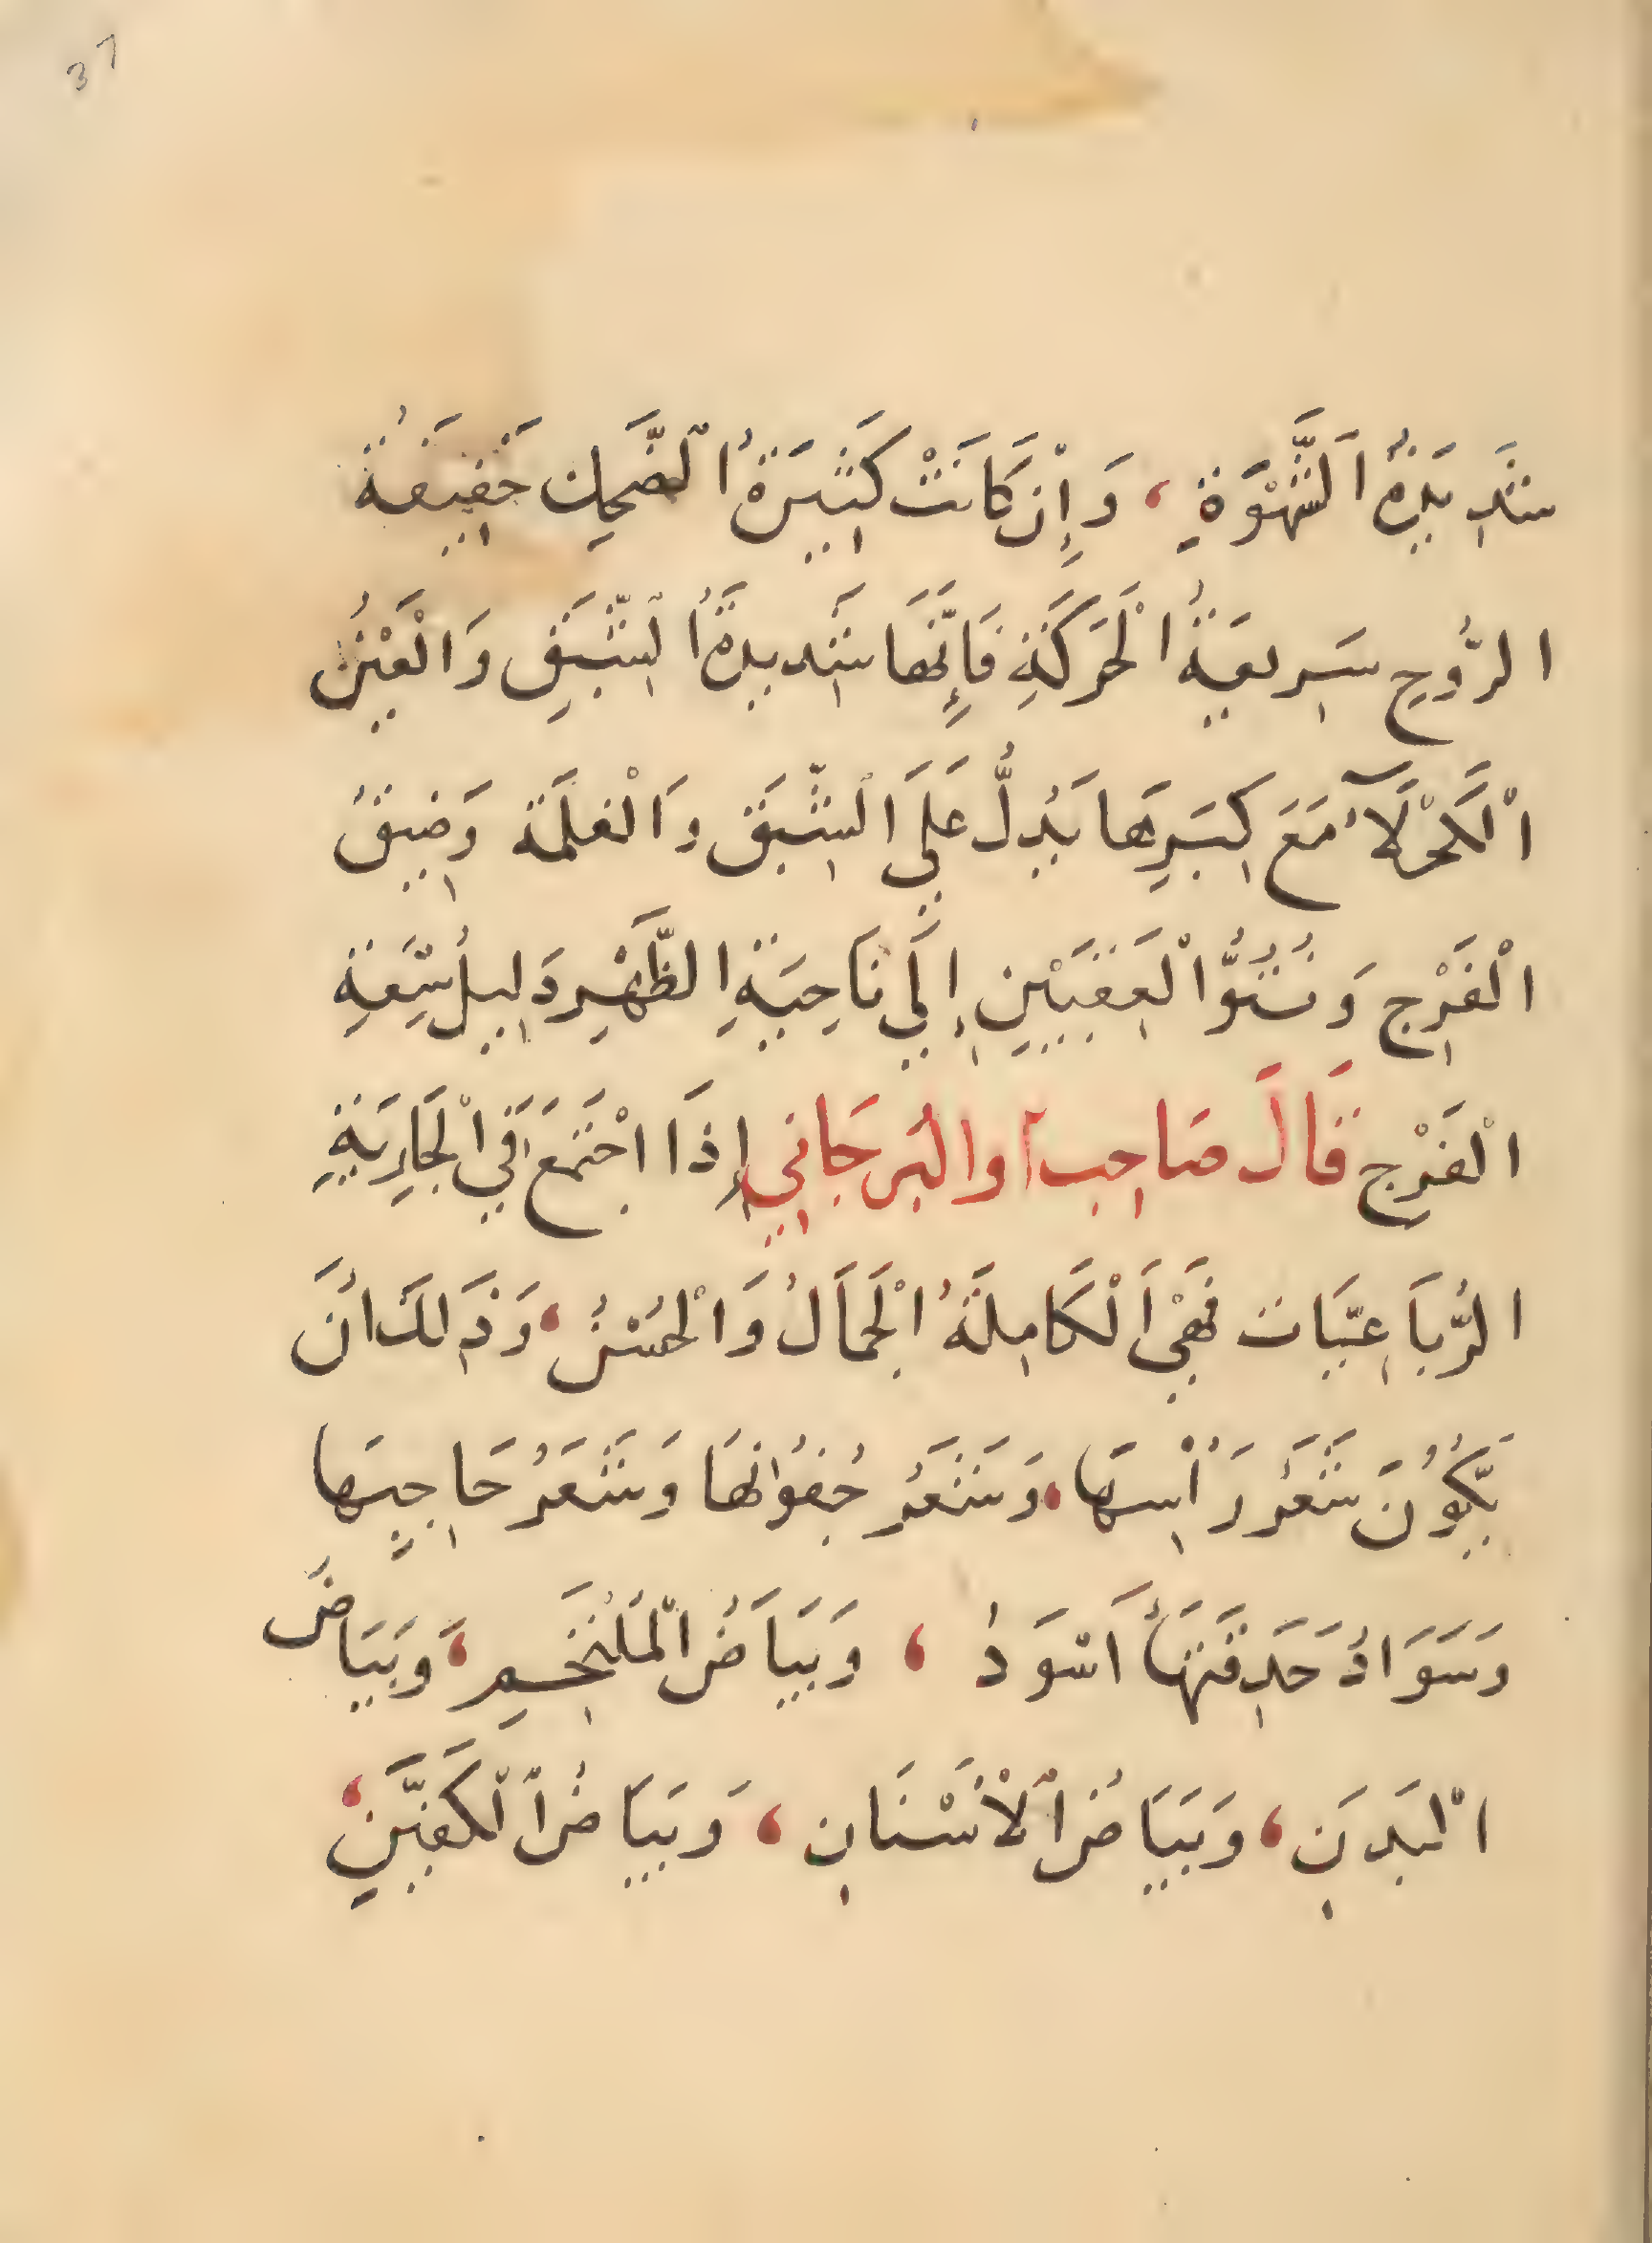 37
شَدِيدَةُ الشَّهْوَةِ، وَإِنْ كَانَتْ كَثِيرَةُ الضَّحِكِ خَفِيفَةُ
الرُّوحِ سَرِيعَةُ الْحَرَكَةِ فَإِنَّهَا شَدِيدَةُ الشَّبَقِ وَالْعَيْنُ
الْكَحْلَآءُ مَعَ كِبَرِهَا يَدُلُّ عَلَى الشَّبَقِ وَالْغُلْمَة وَضِيقُ
الْفَرْجِ وَنُتُوُّ الْعَقِبَيْنِ إِلَى نَاحِيَةِ الظَّهْرِ دَلِيلُ سِّعَةِ
الْفَرْجِ قَالَ صَاحِب آوالبُرجَانِي إِذَا اجْتَمَعَ فِي الْجَارِيَةِ
الرُّبَاعِيَّات فَهِيَ الْكَامِلَةُ الْجَمَالُ وَالْحُسْنُ، وَذَالِكَ أَنَ
يَّكُونَ شَعَرُ رَأْسِهَا، وَشَعَرُ جُفُوانِهَا وَشَعَرُ حَاجِبِهَا
وَسَوَادُ حَدِقَتِهَا أَسْوَدُ، وَبَيَاضُ الْمَلْنُخَّمِ، وَبَيَاضُ
الْبَدَنِ، وَبَيَاضُ الْأَسْنَانِ، وَبَيَاضُ الْكَفَّيْنِ،